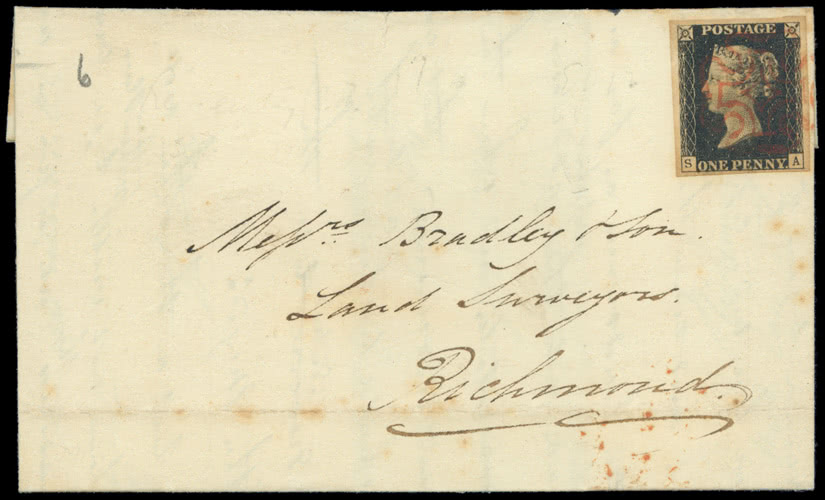 6
POSTAGE
S A
ONE PENNY
Meſsrs Bradley & Son.
Land Surveyors.
Richmond.